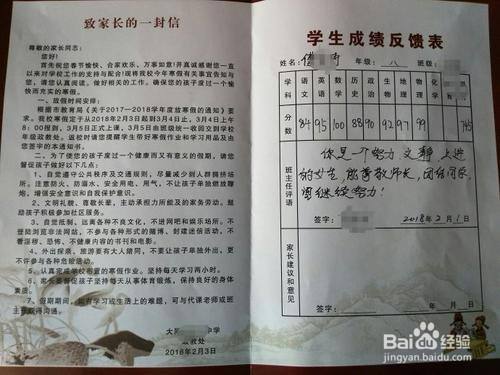 致家长的一封信
尊敬的家长同志：
您好！
首先祝您春节愉快、合家欢乐、万事如意！并真诚感谢您一
直以来对学校工作的支持与配合！现将我校今年寒假有关事宜告知与
您，请您认真阅读，做好相关的工作。确保您的孩子度过一个愉
快而充实的寒假。
一、放假时间安排：
根据市教育局《关于2017—2018学年度放寒假的通知》要
求，我校寒假定于从2018年2月3日起到3月4日止，3月4日上午
8：00报到，3月5日正式上课，3月5日由班级统一收回交到学校
年级政教处。返校时请您提醒学生带好寒假作业和学习用品及由
您签字的本通知书。
二、为了使您的孩子度过一个健康而又有意义的假期，请您督
促做好以下工作：
1、自觉遵守公共秩序及交通规则，尽量减少到人群拥挤场
所。注意防火、防溺水、安全用电、用气，不让孩子单独燃放鞭
炮，增强安全意识和自我保护意识。
2、文明礼貌、尊敬长辈，主动承担力所能及的家务劳动。鼓
励孩子积极参加社区服务。
3、自觉抵制、远离各种不良文化，不进网吧和娱乐场所。不
登陆浏览非法网站，不参与各种形式的赌博、封建迷信活动，不
看淫秽、恐怖、不健康内容的书刊和电影。
4、外出探亲，旅游要有大人陪同，不要让孩子单独外出，更
不许参与各种危险活动。
5、认真完成学校布置的寒假作业。坚持每天学习再小时。
6、要督促孩子坚持每天从事体育锻炼，保持良好的身体
素质。
7、假期期间，如有学习或生活上的难题，可与代课老师或班
主任取得沟通。
大
中学
政教处
2018年2月3日
学生成绩反馈表
姓名： 年级：八
学科 语文 英语 数学 历史 政治 生物 地理 物理 化学
分数 84 95 100 88 90 92 97 99
班主任评语
你是一个努力 文静 上进
的女生 能尊敬师长，团结同学
望继续努力！
签字： 2018年2月1日
家长建议和意见
签字： 年 月 日
Baidu 百度经验
jingyan.baidu.com